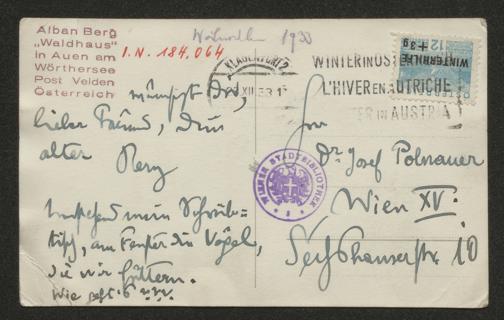 Alban Berg
„Waldhaus"
in Auen am
Wörthersee
Post Velden
Österreich
I.N. 184,064
1933
KLAGENFURT 2
XII.33.1
WINTER IN ÖSTERREICH
L'HIVER EN AUTRICHE
WINTER IN AUSTRIA
WINTERHILFE
12 + 3g
wünscht Dir,
lieber Freund, Dein
alter Berg
Umstehend mein Schreib-
tisch, am Fenster die Vögel,
die wir füttern.
Wie geht's
WIENER STADTBIBLIOTHEK
Dr Josef Polnauer
Wien XV.
Sechshauserstr 10